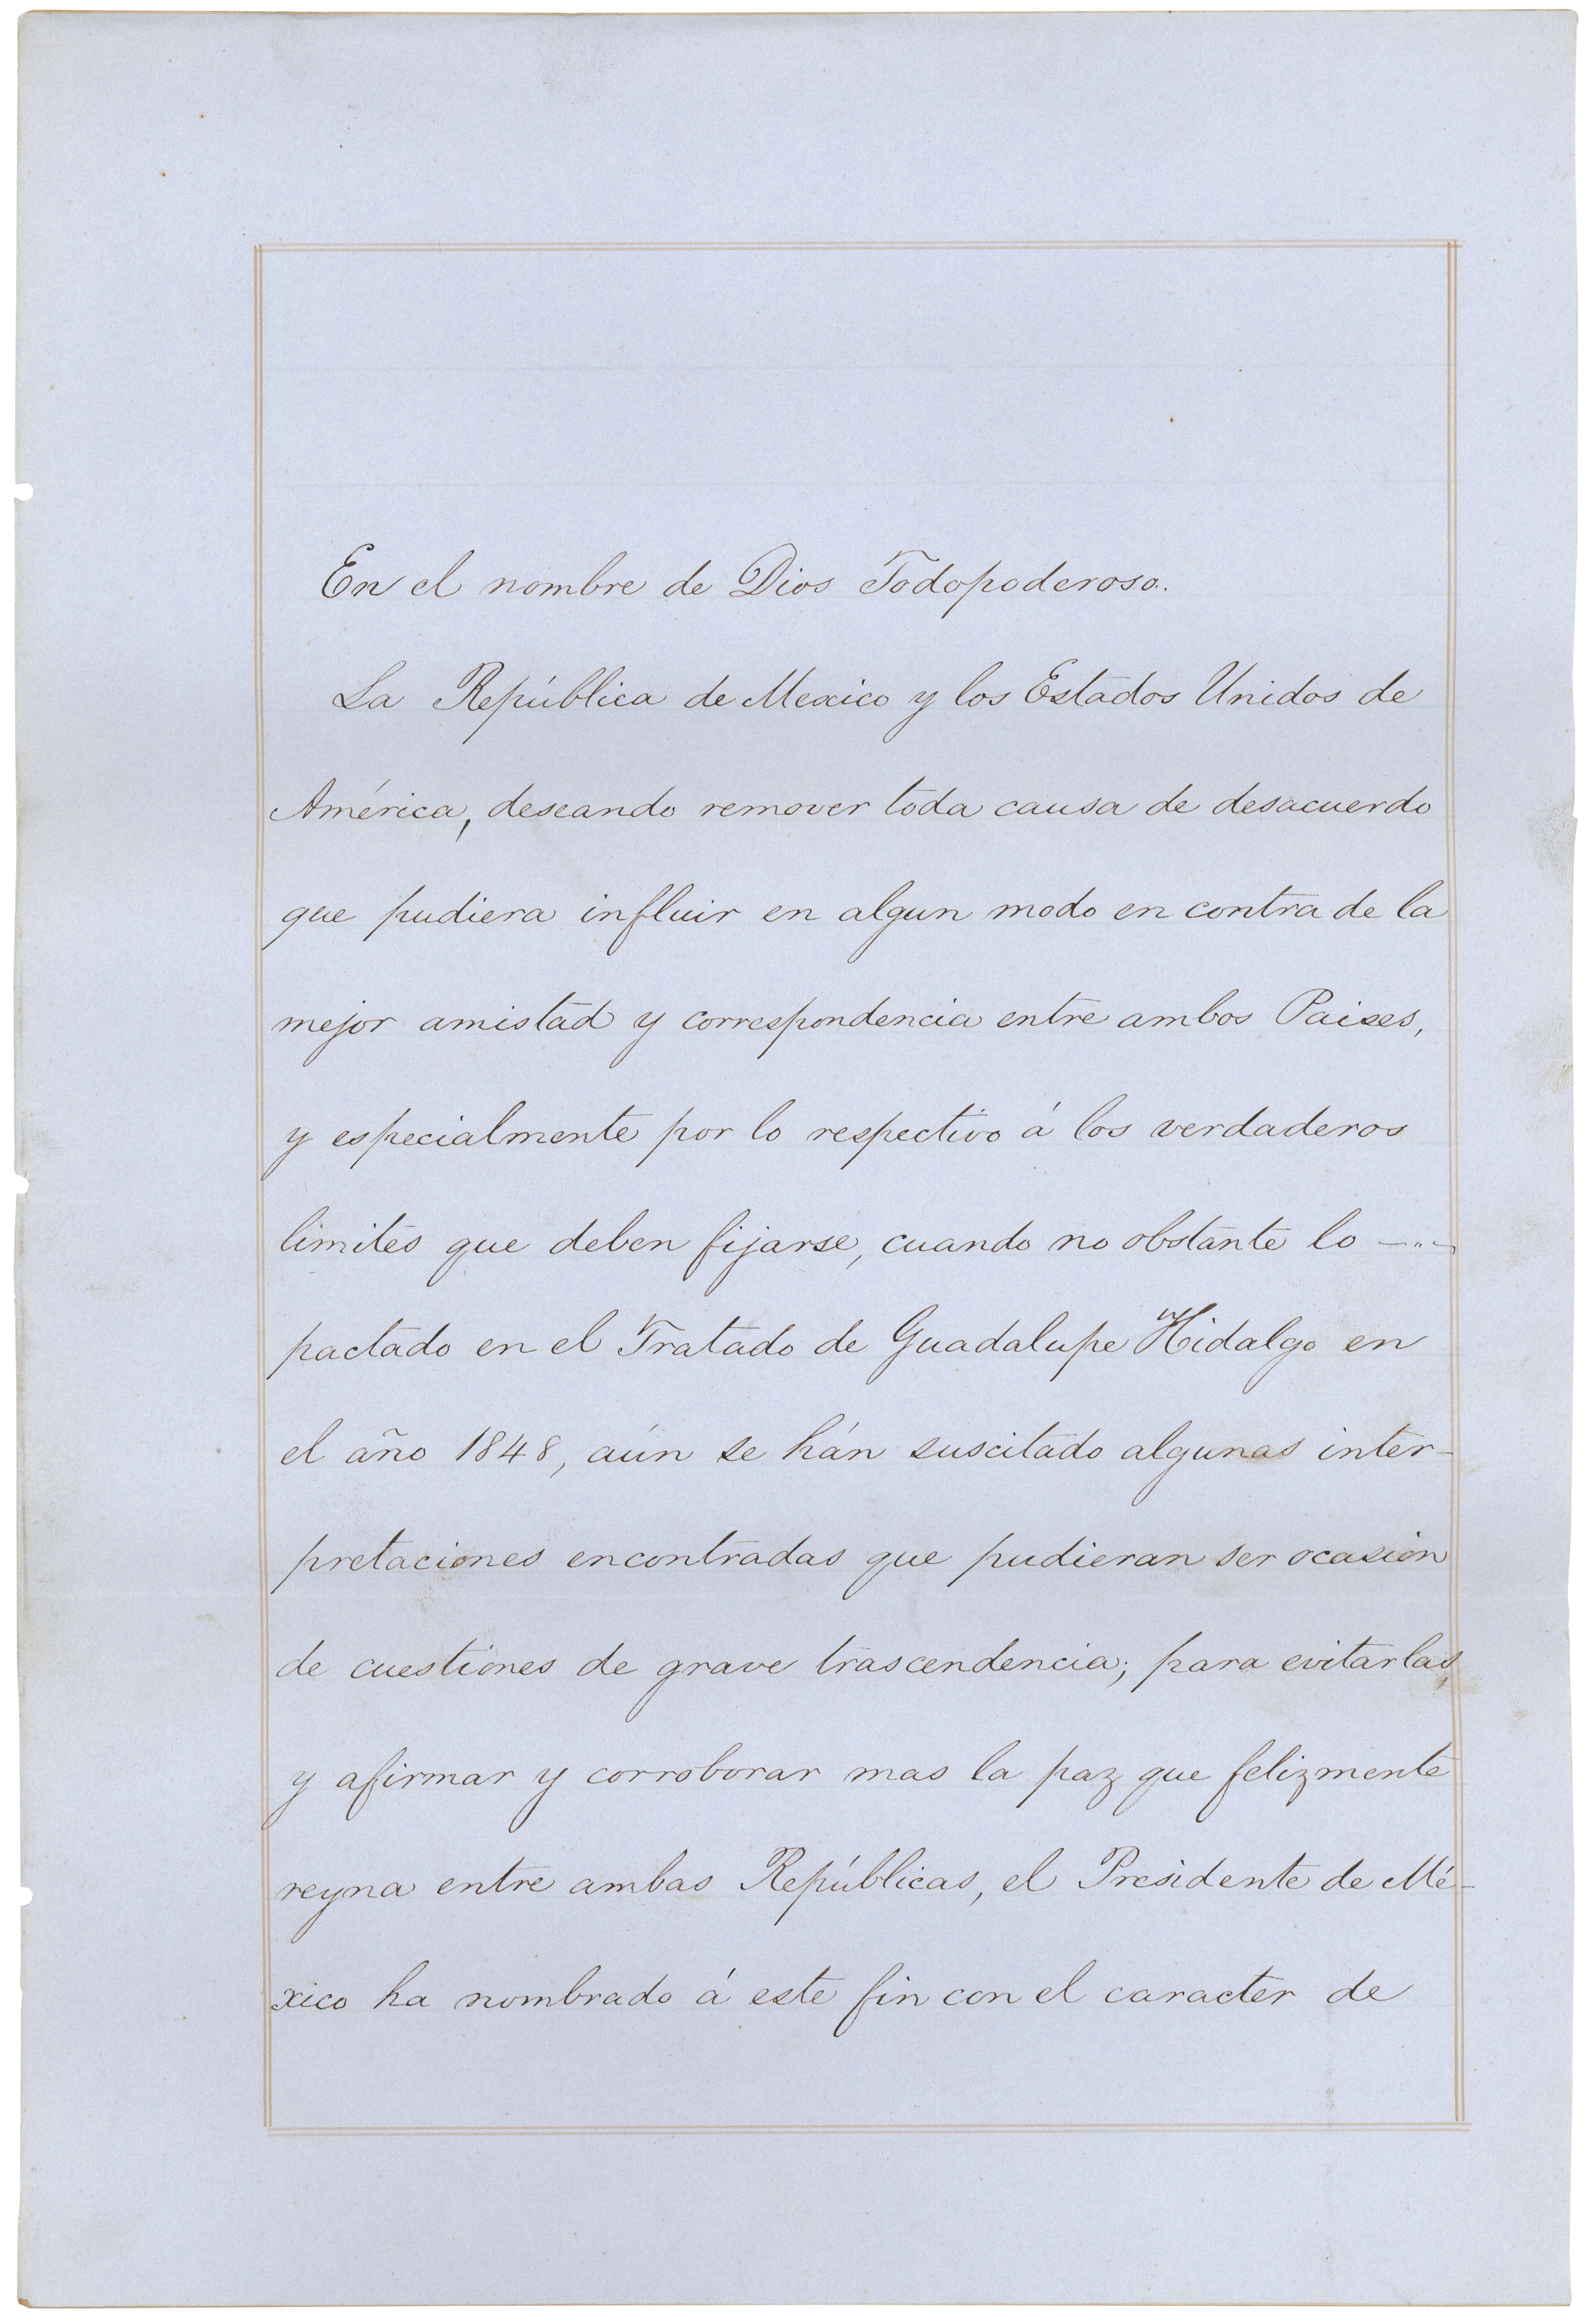 En el nombre de Dios Todopoderoso.
La República de Mexico y los Estados Unidos de
América, deseando remover toda causa de desacuerdo
que pudiera influir en algun modo en contra de la
mejor amistad y correspondencia entre ambos Paises,
y especialmente por lo respectivo á los verdaderos
limites que deben fijarse, cuando no obstante lo —"—
pactado en el Tratado de Guadalupe Hidalgo en
el año 1848, aún se hán suscitado algunas inter-
pretaciones encontradas que pudieran ser ocasion
de cuestiones de grave trascendencia; para evitarlas,
y afirmar y corroborar mas la paz que felizmente
reyna entre ambas Repúblicas, el Presidente de Mé-
xico ha nombrado á este fin con el caracter de